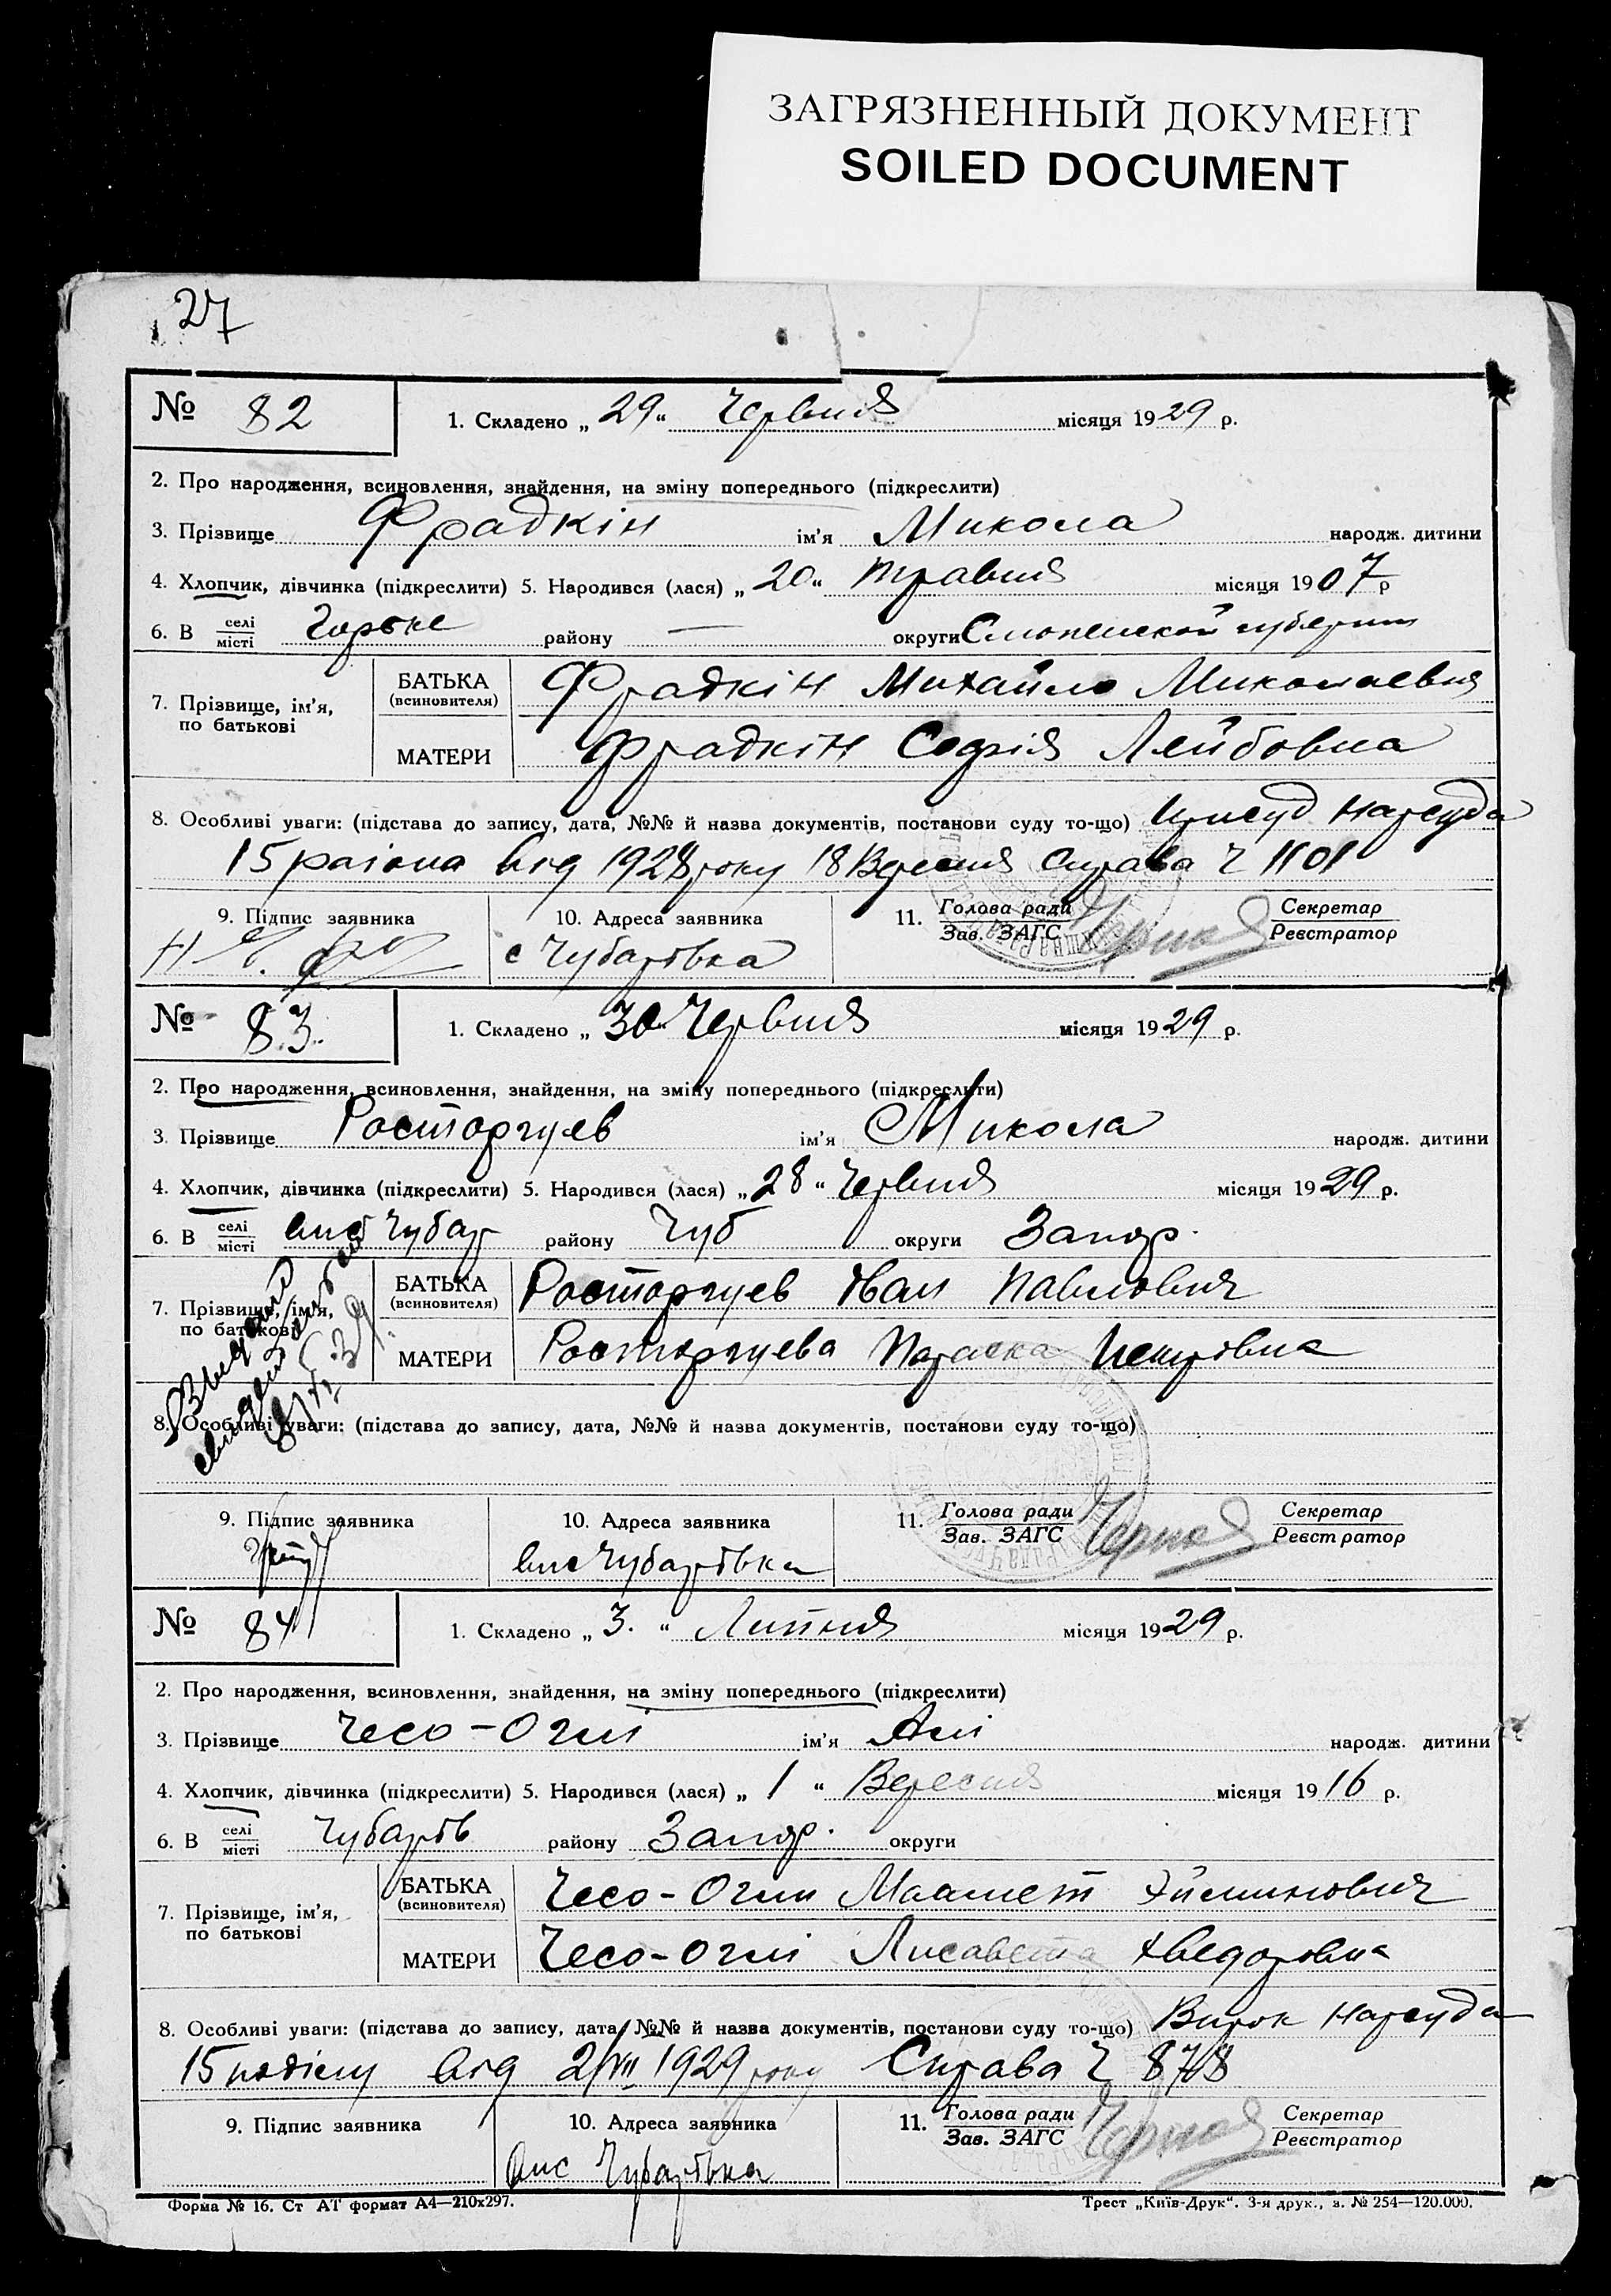 ЗАГРЯЗНЕННЫЙ ДОКУМЕНТ
SOILED DOCUMENT
27
№ 82 1. Складено „ 29 “ Червня місяця 1929 р.
2. Про народження, всиновлення, знайдення, на зміну попереднього (підкреслити)
3. Прізвище Фрадкін ім'я Микола народж. дитини
4. Хлопчик, дівчинка (підкреслити) 5. Народився (лася) „ 20 “ травня місяця 1907 р
6. В селі/місті Горьке району — округи Смоленской губернии
7. Прізвище, ім'я, по батькові БАТЬКА (всиновителя) Фрадкін Михайло Миколаевич
МАТЕРИ Фрадкін Софія Лейбовна
8. Особливі уваги: (підстава до запису, дата, №№ й назва документів, постанови суду то-що) Присуд Нарсуда
15 раіона від 1928 року 18 Вересня Справа Ч 1101
9. Підпис заявника 10. Адреса заявника 11. Голова ради/Зав. ЗАГС Секретар/Реєстратор
с Чубарівка
№ 83. 1. Складено „ 30 “ Червня місяця 1929 р.
2. Про народження, всиновлення, знайдення, на зміну попереднього (підкреслити)
3. Прізвище Росторгуев ім'я Микола народж. дитини
4. Хлопчик, дівчинка (підкреслити) 5. Народився (лася) „ 28 “ Червня місяця 1929 р.
6. В селі/місті Чубар району Чуб округи Запор.
7. Прізвище, ім'я, по батькові БАТЬКА (всиновителя) Росторгуев Іван Павлович
МАТЕРИ Росторгуева Параска Петровна
8. Особливі уваги: (підстава до запису, дата, №№ й назва документів, постанови суду то-що)
9. Підпис заявника 10. Адреса заявника 11. Голова ради/Зав. ЗАГС Секретар/Реєстратор
Чубарівка
№ 84 1. Складено „ 3. “ Липня місяця 1929 р.
2. Про народження, всиновлення, знайдення, на зміну попереднього (підкреслити)
3. Прізвище Чесо-Огли ім'я Алі народж. дитини
4. Хлопчик, дівчинка (підкреслити) 5. Народився (лася) „ 1 “ Вересня місяця 1916 р.
6. В селі/місті Чубарів району Запор. округи
7. Прізвище, ім'я, по батькові БАТЬКА (всиновителя) Чесо-Огли Маамет
МАТЕРИ Чесо-Огли Лисавета Хведоровна
8. Особливі уваги: (підстава до запису, дата, №№ й назва документів, постанови суду то-що) Вирок Нарсуда
15 від 2/VII 1929 року Справа Ч 878
9. Підпис заявника 10. Адреса заявника 11. Голова ради/Зав. ЗАГС Секретар/Реєстратор
Чубарівка
Форма № 16. Ст АТ формат А4—210х297. Трест „Київ-Друк“. 3-я друк., з. № 254—120.000.